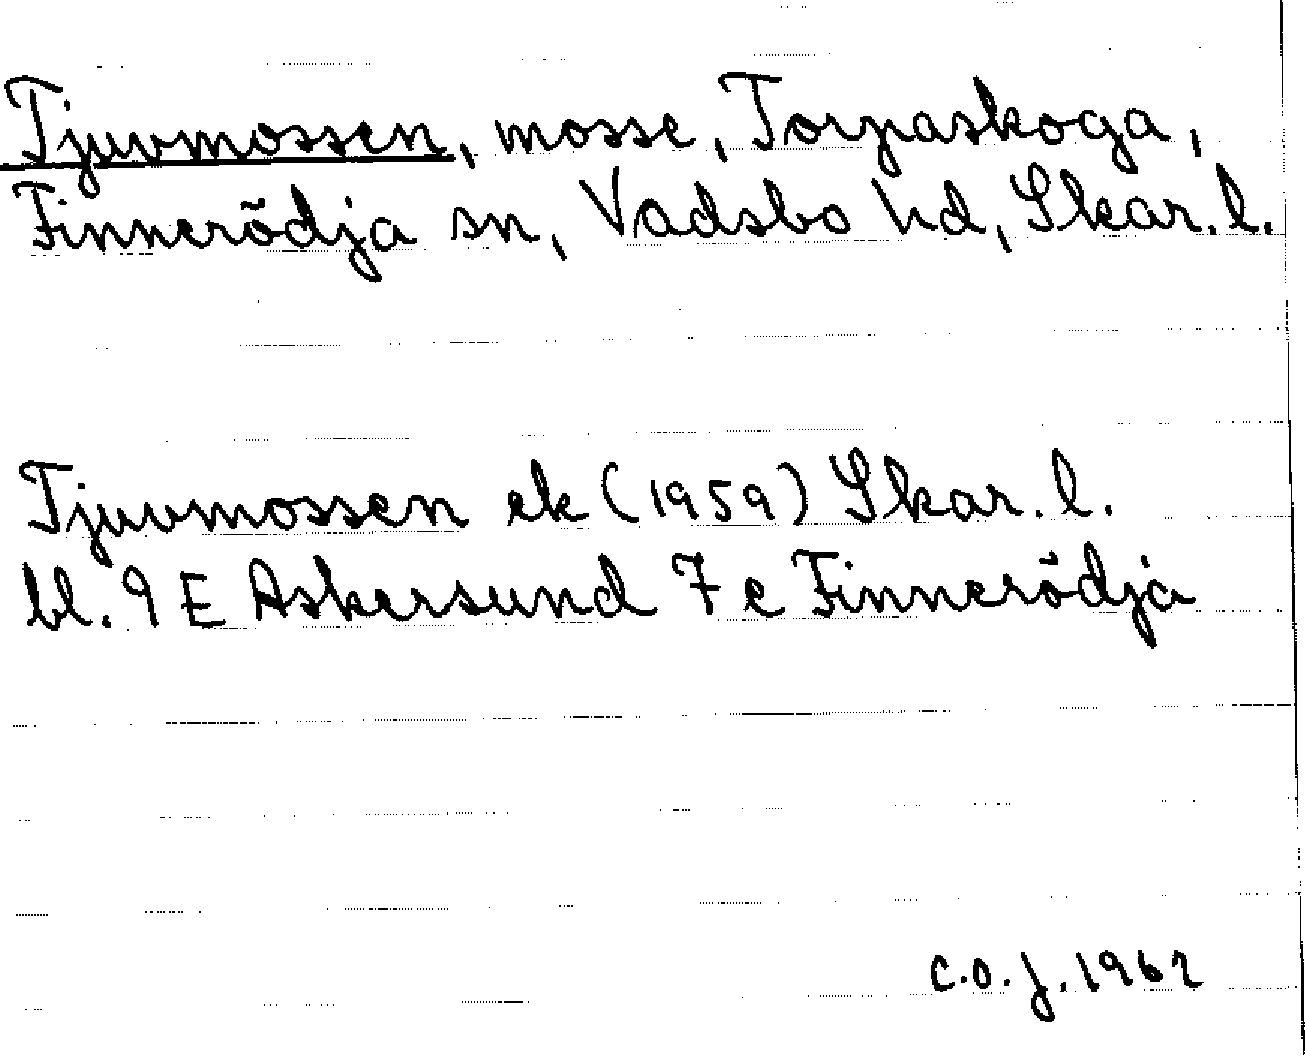 Tjuvmossen, mosse, Torpaskoga,
Finnerödja sn, Vadsbo hd, Skar. l.
Tjuvmossen ek (1959) Skar. l.
bl. 9 E Askersund 7 c Finnerödja
C.O.J. 1962